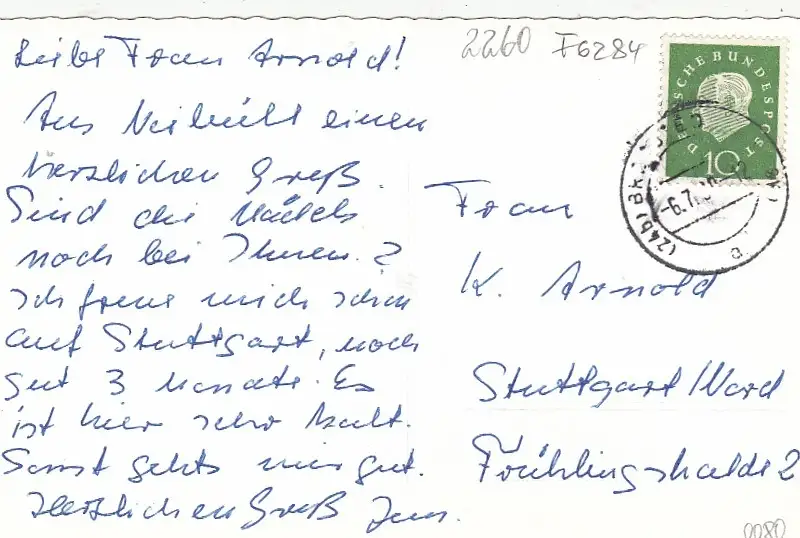 Liebe Frau Arnold!
Aus Neibüll einen
herzlichen Gruß.
Sind die Mädels
noch bei Ihnen?
Ich freue mich schon
auf Stuttgart, noch
gut 3 Monate. Es
ist hier sehr kalt.
Sonst gehts mir gut.
Herzlichen Gruß
2260 F6284
DEUTSCHE BUNDESPOST
10
(24b) BR
-6.7.
a
Frau
K. Arnold
Stuttgart/Nord
Frühlingshalde 2
0080